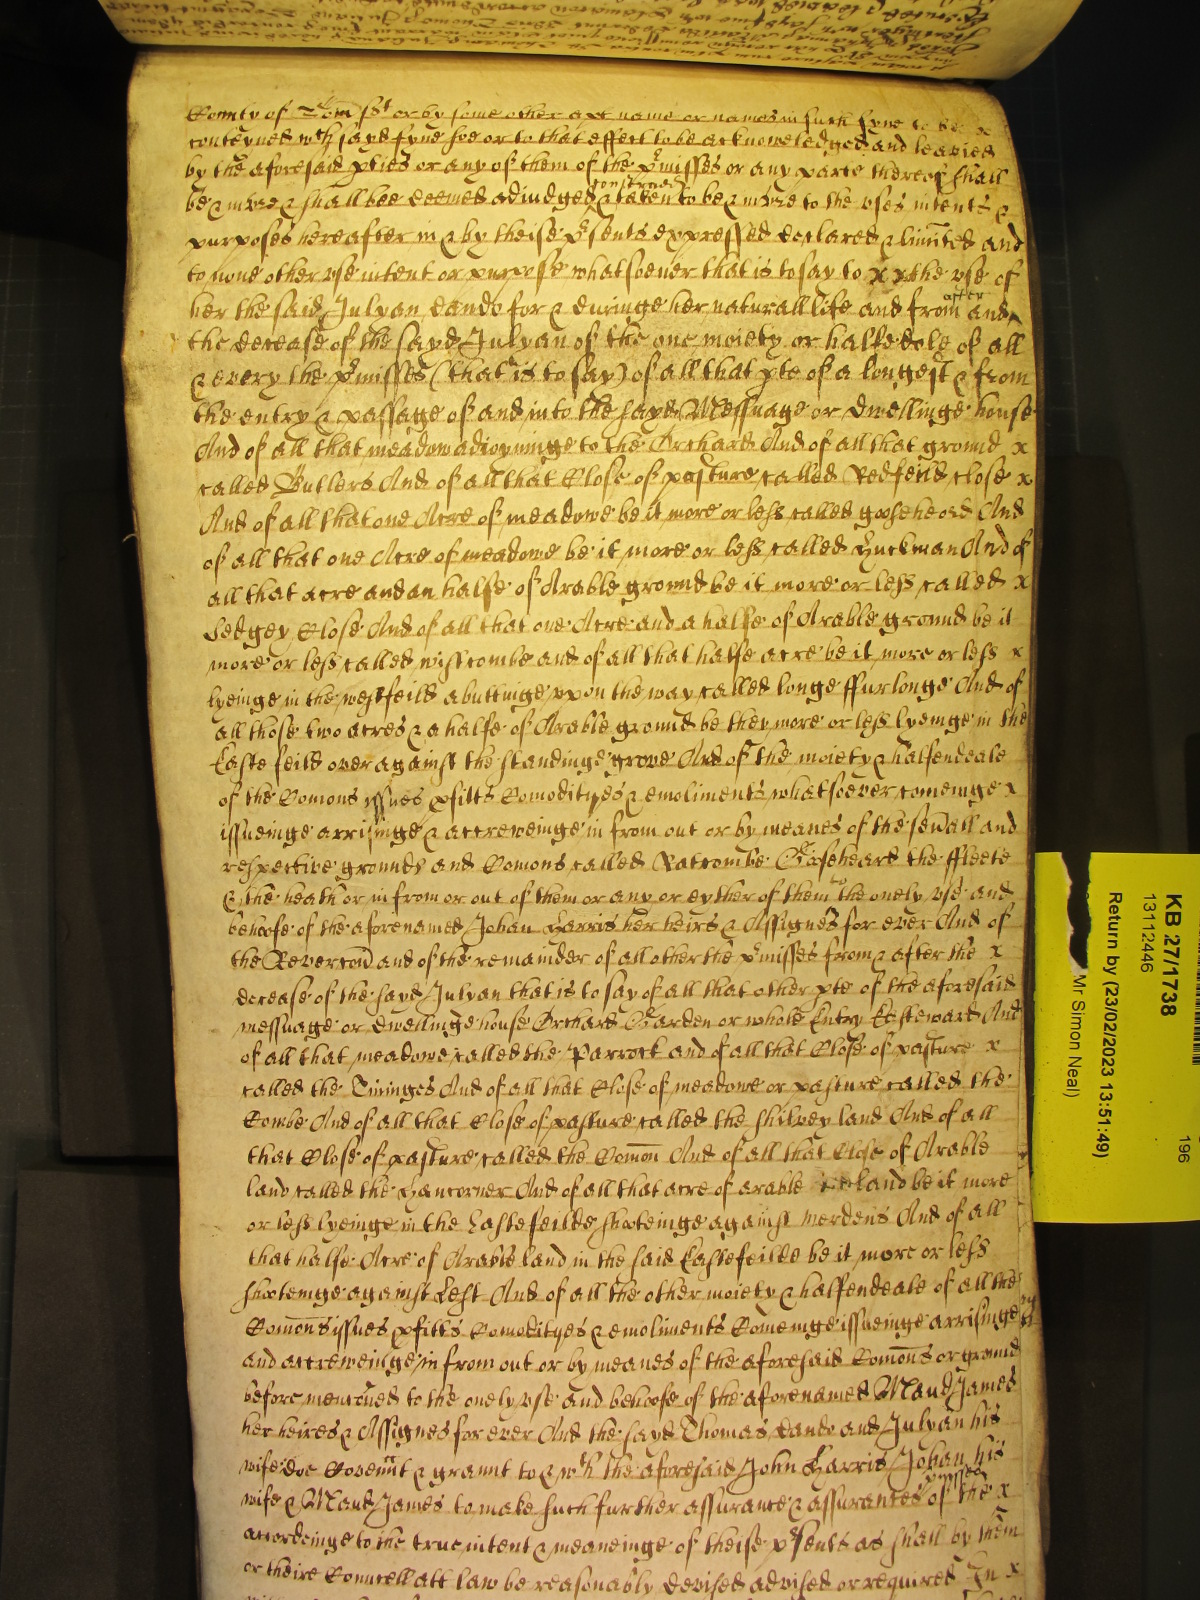 County of Som̄st or by some other apt name or names in such fyne to be x
conteyned wth sayd fyne soe or to that effect to be acknowledged and leavied
by the aforesaid pties or any of them of the pmisses or any parte thereof shall
be & invre & shall bee deemed adiudged construed & taken to be & invre to the vses intents &
purposes hereafter in & by theise psents expressed declared & limited and
to none other vse intent or purpose whatsoever that is to say to x x the vse of
her the said Julyan Dando for & duringe her naturall life and from and after
the decease of the sayd Julyan of the one moiety or halfe dole of all
& every the pmisses (that is to say) of all that pte of a longest & from
the entry & passage of and into the sayd Messuage or dwellinge house
And of all that meadow adioyninge to the Orchard And of all that ground x
called Butlers And of all that Close of pasture called Redfeild close x
And of all that one Acre of meadowe be it more or less called gooseheard And
of all that one Acre of meadowe be it more or less called Huckman And of
all that acre and an halfe of Arable ground be it more or less called x
Sedgey Close And of all that one Acre and a halfe of Arable ground be it
more or less called wisscombe and of all that halfe acre be it more or less x
lyeinge in the westfeild abuttinge vpon the way called longe ffurlonge And of
all those two acres & a halfe of Arable ground be they more or less lyeinge in the
Easte feild over against the standinge grove And of the moiety & halfendeale
of the Comons issues pfitts Comodityes & emoliments whatsoever comeinge x
issueinge arrisinge & accreweinge in from out or by meanes of the sevall and
respective grounds and Comons called Ratcombe Gooseheard the ffleete
& the heath or in from or out of them or any or eyther of them to the onely vse and
behoofe of the aforenamed Johan Harris her heirs & Assignes for ever And of
the Revercon and of the remainder of all other the pmisses from & after the x
decrease of the sayd Julyan that is to say of all that other pte of the aforesaid
messuage or dwellinge house Orchard Garden or whole Entry Eastward And
of all that meadowe called the Parrock and of all that Close of pasture x
called the Tininges And of all that Close of meadowe or pasture called the
Combe And of all that Close of pasture called the shilvey land And of all
that Close of pasture called the Comon And of all that Close of Arable
land called the Hancorner And of all that acre of arable land be it more
or less lyeinge in the Eastefeilde shooteinge against merdens And of all
that halfe Acre of Arable land in the said Eastefeilde be it more or less
shooteinge against Lest And of all the other moiety & halfendeale of all the
Comons issues pfitts Comodityes & emoliments Comeinge issueinge arrisinge
and accreweinge in from out or by meanes of the aforesaid Comons or ground
before menconed to the onely vse and behoofe of the aforenamed Maud James
her heires & Assignes for ever And the sayd Thomas Dando and Julyan his
wife doe Covennt & graunt to & wth the aforesaid John Harris Johan his
wife & Maud James to make such further assurance & assurances of the pmisses x
accordeinge to the true intent & meaneinge of theise psents as shall by them
or theire Councell att law be reasonably devised advised or required In x
KB 27/1738
13112446
196
Return by (23/02/2023 13:51:49)
Mr Simon Neal)